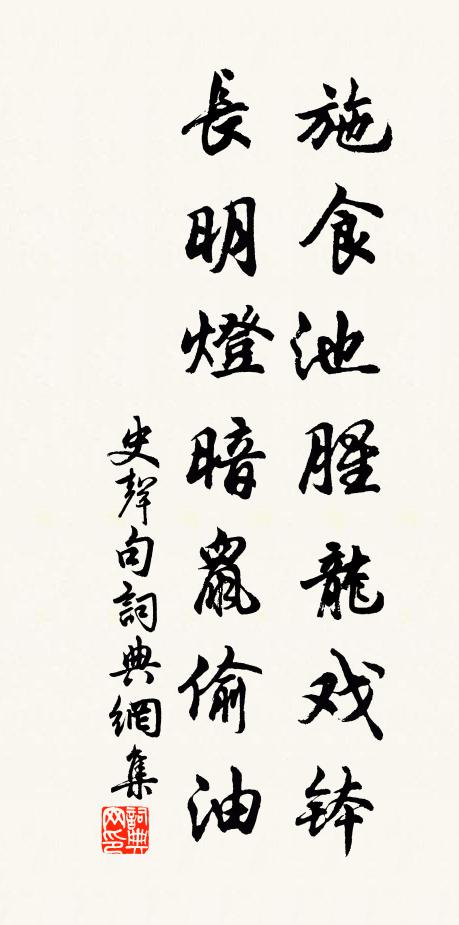 施食池腥龍戏钵
長明燈暗鼠偷油
史聲句詞典網集
詞典网印